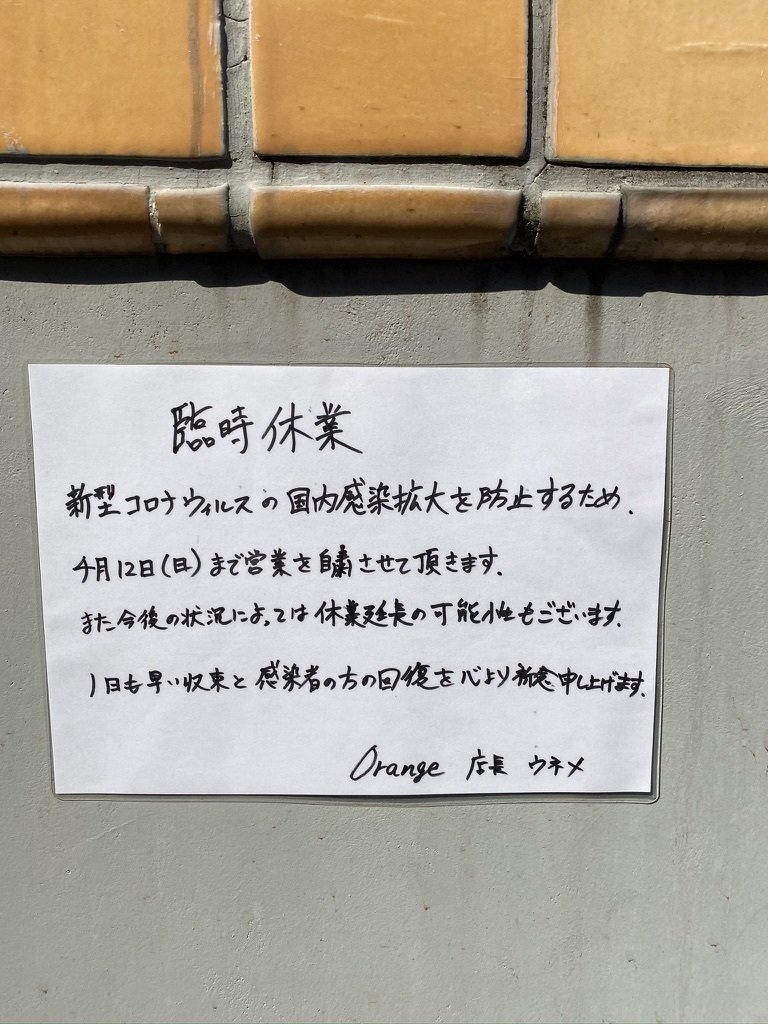 臨時休業
新型コロナウィルスの国内感染拡大を防止するため、
4月12日(日)まで営業を自粛させて頂きます。
また今後の状況によっては休業延長の可能性もございます。
1日も早い収束と感染者の方の回復を心より祈念申し上げます。
Orange 店長 ウネメ